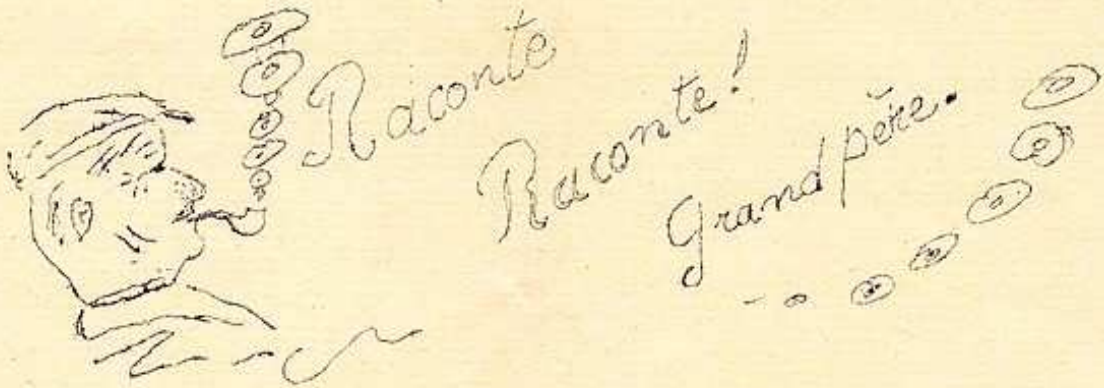 Raconte
Raconte!
Grand père.